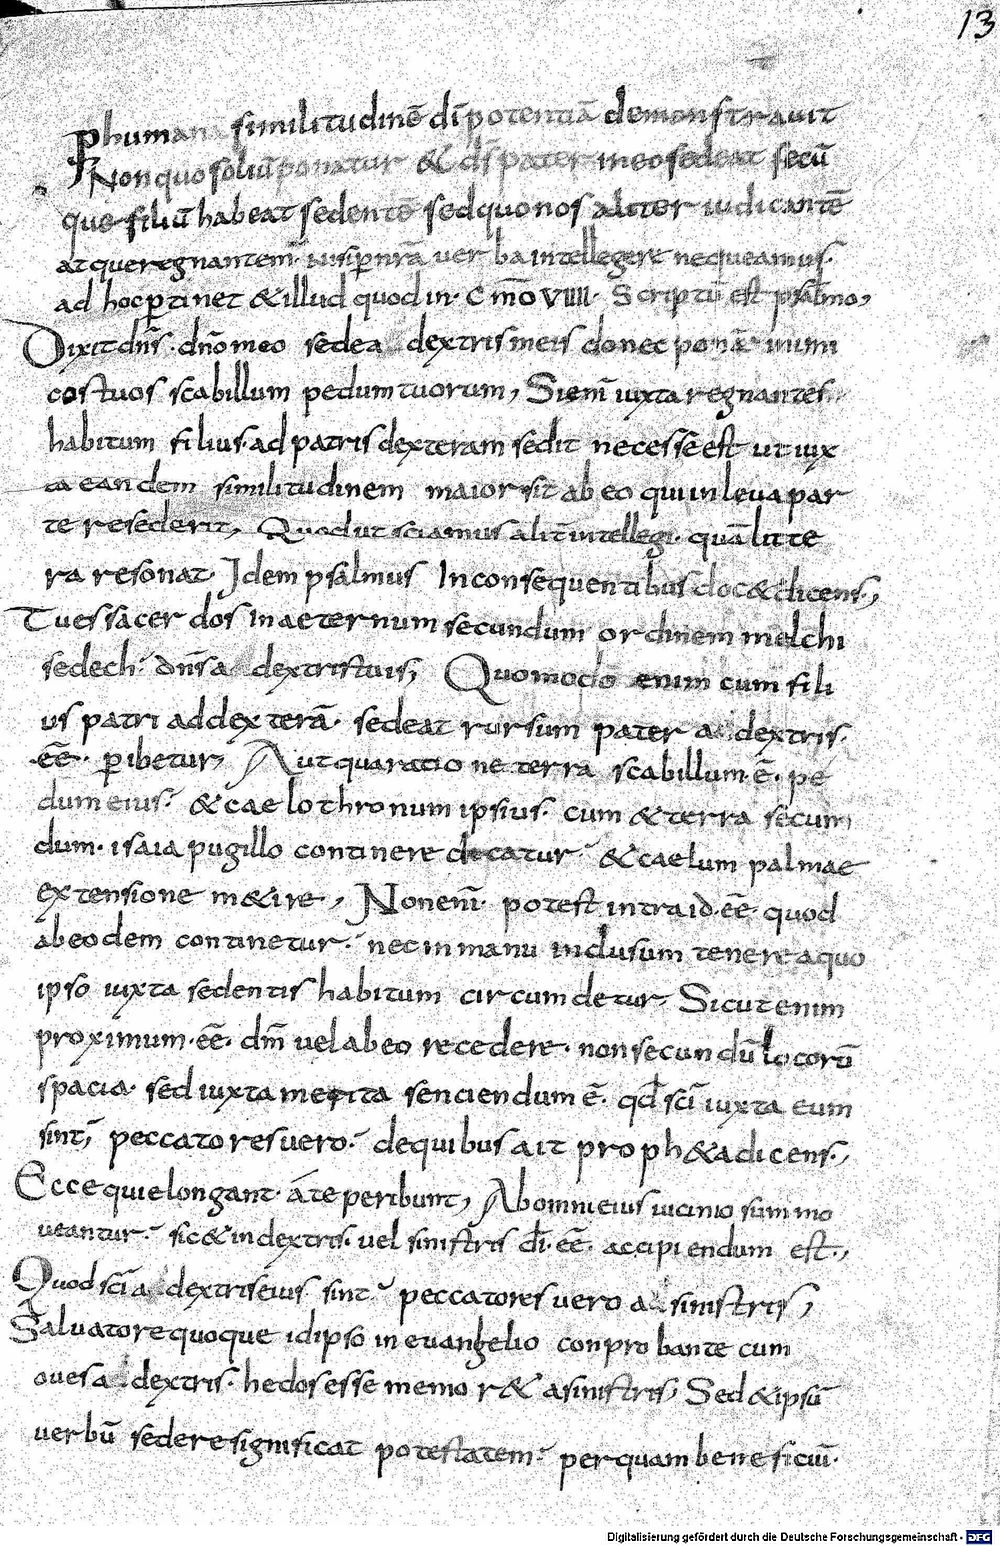 13
phumana similitudinē dī potentiā demonstrauit
Non quo soliū ponatur & dś pater in eo sedeat secū
que filiū habeat sedentē sed quo nos aliter iudicantē
atque regnantem· nisi ꝑ nr̄a uerba intellegere nequeamus·
ad hoc ꝑtinet & illud quod in· C mo VIIII· Scriptū est psalmo,
Dixit dn̄s· dn̄o meo sede a dextris meis donec ponā inimi
cos tuos scabillum pedum tuorum, Si eni iuxta regnantes
habitum filius· ad patris dexteram sedit necesse est ut iux
ta eandem similitudinem maior sit ab eo qui in leua par
te resederit, Quod ut sciamus alit intellegi· quā litte
ra resonat· Idem psalmus In consequentibus doc& dicens·,
Tu es sacerdos in aeternum secundum ordinem melchi
sedech· dn̄s a dextris tuis, Quomodo enim cum fili
us patri ad dexterā· sedeat rursum pater a dextris·
eē· ꝑibetur, Aut qua ratione terra scabillum· ē· pe
dum eius· & caelo thronum ipsius· cum & terra secun
dum· isaia pugillo continere dicatur· & caelum palmae
extensione m&ire·, Non enī· potest intra id· eē· quod
ab eodem continetur· nec in manu inclusum tenere a quo
ipso iuxta sedentis habitum circumdetur, Sicut enim
proximum· eē· dm̄ uel ab eo recedere· non secundū locorū
spacia· sed iuxta merita senciendum ē· qd sci iuxta eum
sint, peccatores uero· de quibus ait proph&a dicens·,
Ecce qui elongant· á te peribunt, Ab omni eius uicinio summo
ueantur· sic & in dextris· uel sinistris dī· eē· accipiendum est·,
Quod sci a dextris eius sint· peccatores uero a sinistris,
Saluatore quoque id ipso in euangelio conprobante cum
oues a dextris· hedos esse memor& a sinistris, Sed & ipsū
uerbū sedere significat potestatem· per quam beneficiū·
Digitalisierung gefördert durch die Deutsche Forschungsgemeinschaft - DFG